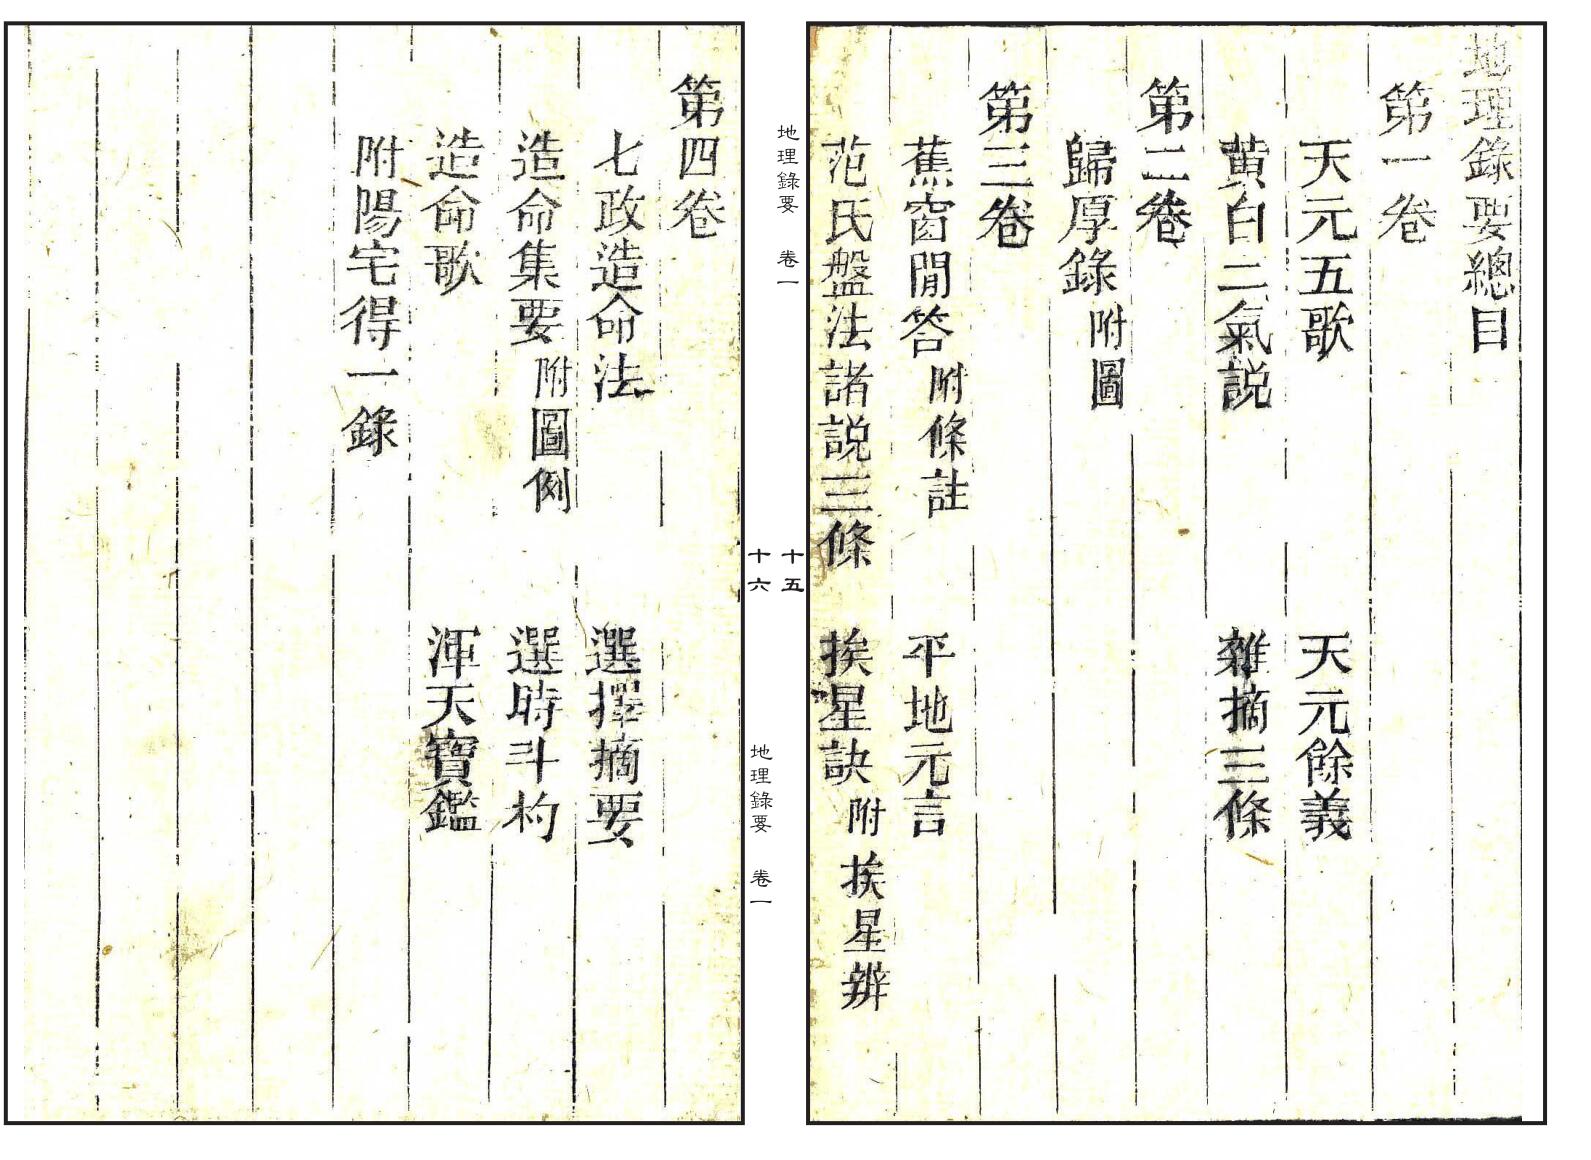 地理錄要總目
第一卷
天元五歌　天元餘義
黄白二氣説　雜摘三條
第二卷
歸厚錄附圖
第三卷
蕉窗閒答附條註　平地元言
范氏盤法諸説三條　挨星訣附挨星辨
地理錄要　卷一
十五
十六
地理錄要　卷一
第四卷
七政造命法　選擇摘要
造命集要附圖例　選時斗杓
造命歌　渾天寶鑑
附陽宅得一錄